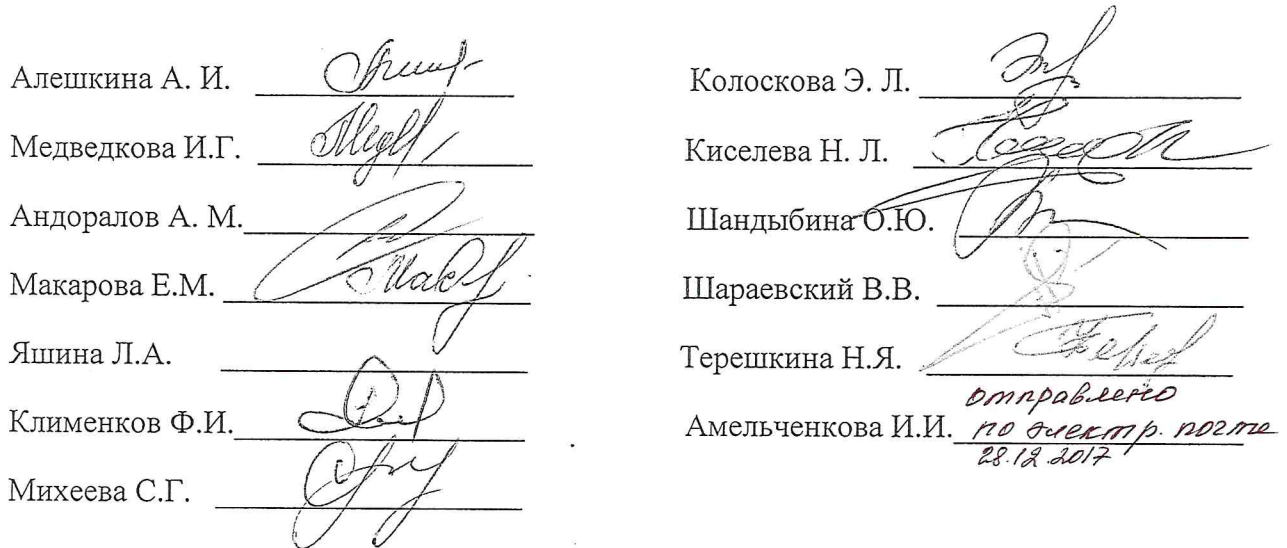 Алешкина А. И.
Медведкова И.Г.
Андоралов А. М.
Макарова Е.М.
Яшина Л.А.
Клименков Ф.И.
Михеева С.Г.
Колоскова Э. Л.
Киселева Н. Л.
Шандыбина О.Ю.
Шараевский В.В.
Терешкина Н.Я.
отправлено
Амельченкова И.И. по электр. почте
28.12.2017